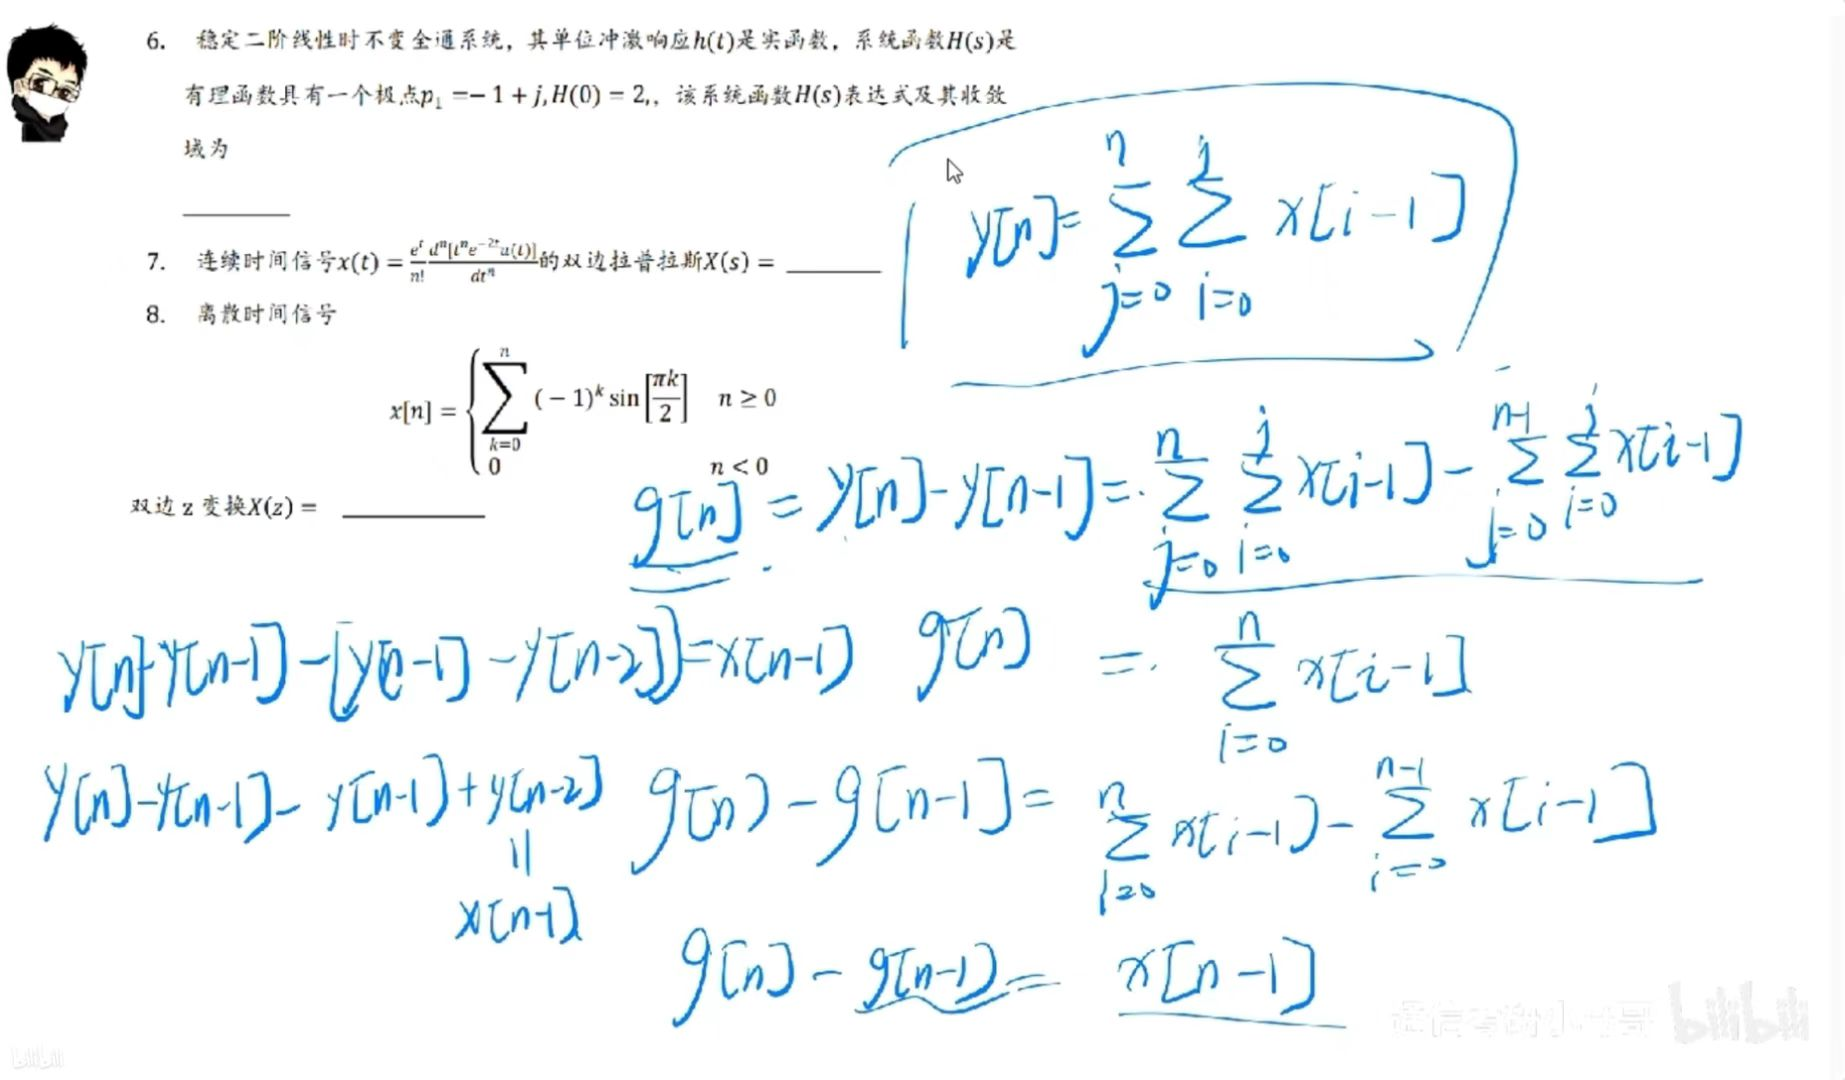 6. 稳定二阶线性时不变全通系统，其单位冲激响应h(t)是实函数，系统函数H(s)是
有理函数具有一个极点p₁ =− 1 + j, H(0) = 2,，该系统函数H(s)表达式及其收敛
域为
7. 连续时间信号x(t) = e^t/n! d^n[t^n e^{-2t}u(t)]/dt^n 的双边拉普拉斯X(s) =
8. 离散时间信号
x[n] = { ∑_{k=0}^{n} (− 1)^k sin[πk/2] n ≥ 0
0 n < 0
双边 z 变换X(z) =
y[n] = ∑_{j=0}^{n} ∑_{i=0}^{j} x[i-1]
g[n] = y[n]-y[n-1] = ∑_{j=0}^{n} ∑_{i=0}^{j} x[i-1] - ∑_{j=0}^{n-1} ∑_{i=0}^{j} x[i-1]
y[n]-y[n-1]-[y[n-1]-y[n-2]]=x[n-1]
g[n] = ∑_{i=0}^{n} x[i-1]
y[n]-y[n-1]-y[n-1]+y[n-2]
=
x[n-1]
g[n]-g[n-1]= ∑_{i=0}^{n} x[i-1]- ∑_{i=0}^{n-1} x[i-1]
g[n]-g[n-1]= x[n-1]
bilibili
bilibili